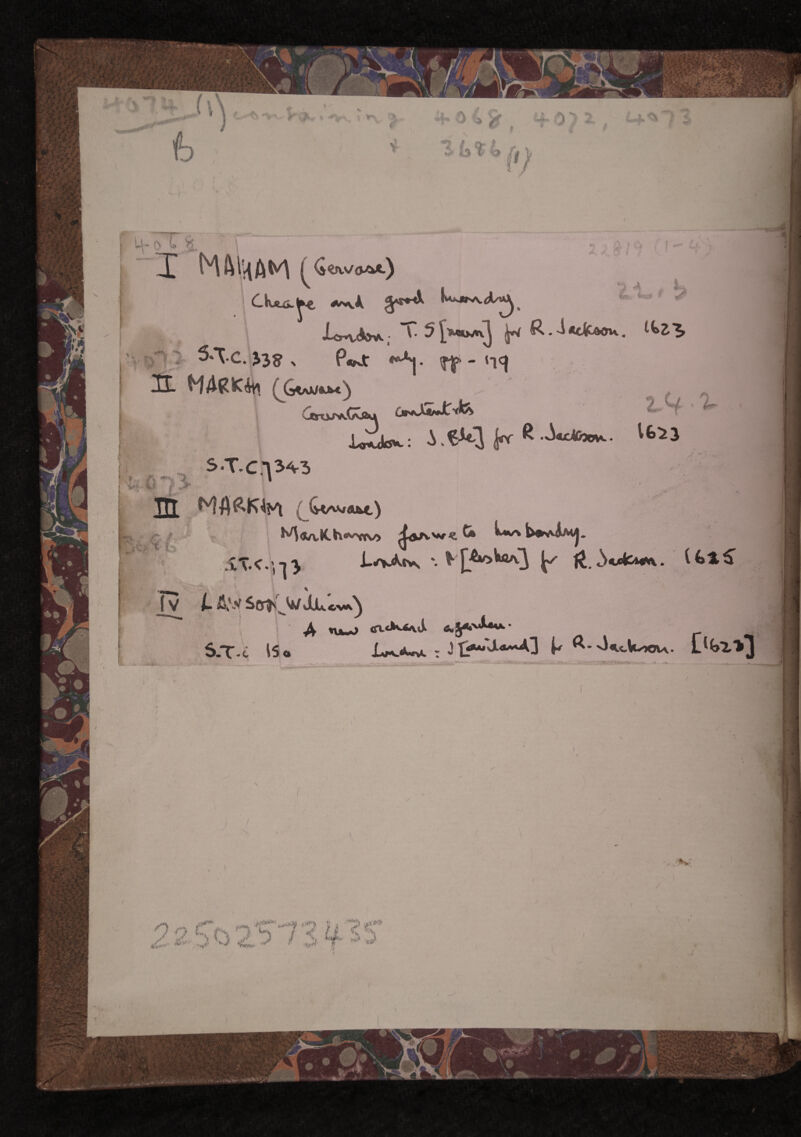 4074 (1) containing 4068, 4072, 4073
B + 3686 (1)
4068
4068 22819 (1-4)
I MAHAM (Gervase)
Cheape and good huandry. 22.
London: T. S[nown] for R. Jackson. 1623
4072 S.T.C. 338. Part only. pp - 179
II MARKHM (Gervase)
Countrey 24.2
London: J. for R. Jackson. 1623
S.T.C. 343
4073
III MARKHM (Gervase)
Markhams farwe to husbandry.
3686
S.T.C. 173 London: [Fisher] for R. Jackson. 1625
IV LAWSON (William)
A new orchard garden.
S.T.C 150 London: J [aviland] for R. Jackson. [1623]
22502573435